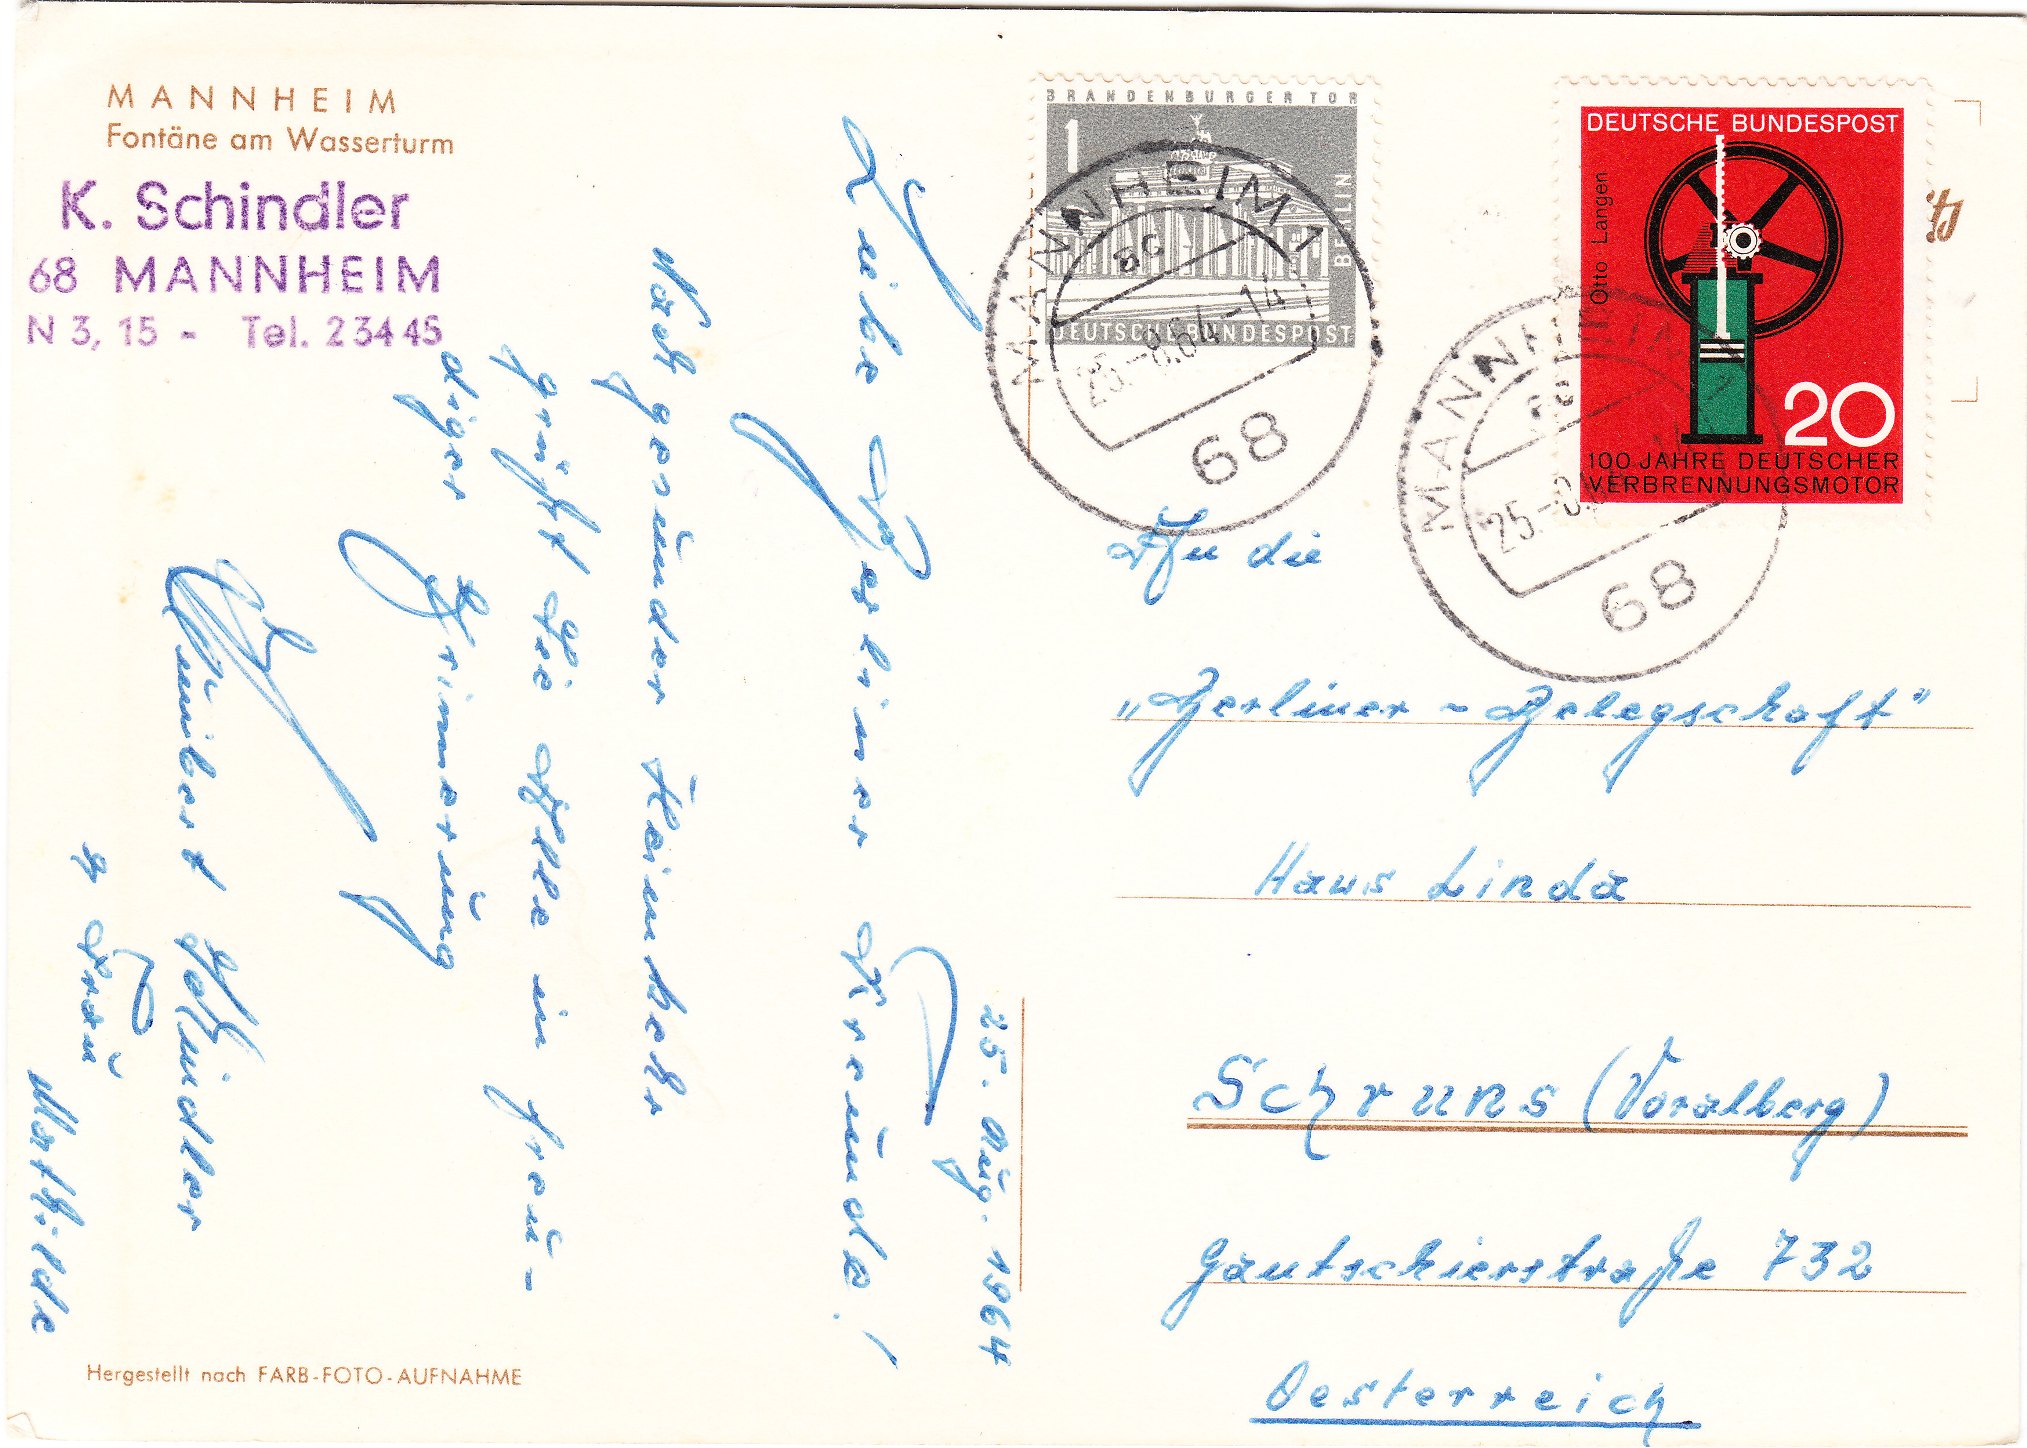 MANNHEIM
Fontäne am Wasserturm
K. Schindler
68 MANNHEIM
N 3, 15 - Tel. 23445
25. Aug. 1964
Liebe Berliner Freunde!
Nach gesunder Heimkehr
grüßt Sie Alle in freu-
diger Erinnerung
Ihr
Kunibert Schindler
u. Frau
Mathilde
Hergestellt nach FARB-FOTO-AUFNAHME
BRANDENBURGER TOR
1
BERLIN
DEUTSCHE BUNDESPOST
MANNHEIM 1
ac
25.-8.64-14
68
DEUTSCHE BUNDESPOST
Otto Langen
20
100 JAHRE DEUTSCHER
VERBRENNUNGSMOTOR
MANNHEIM
25.-8.
68
An die
„Berliner - Belegschaft"
Haus Linda
Schruns (Voralberg)
Gautschierstraße 732
Oesterreich